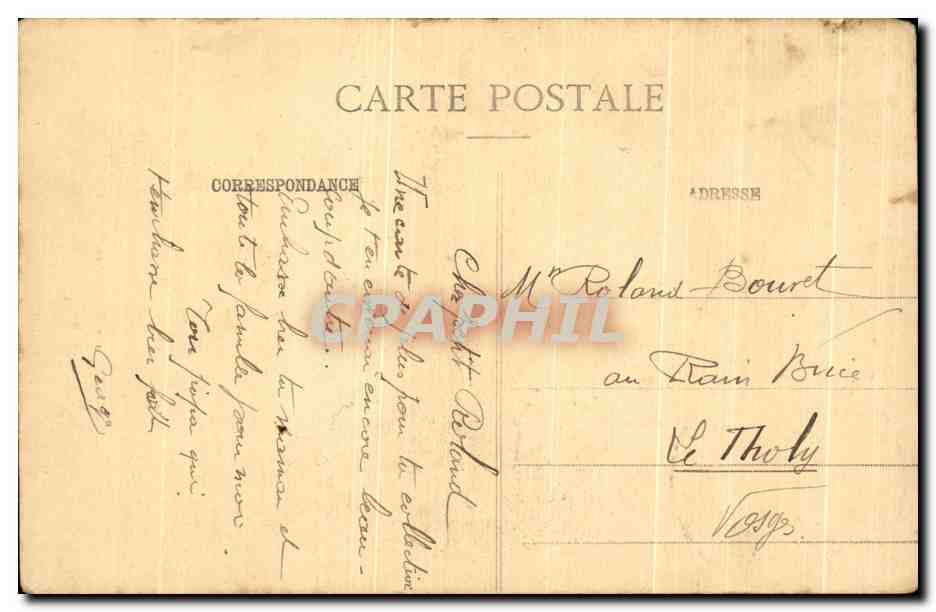 CARTE POSTALE
CORRESPONDANCE
ADRESSE
Cher petit Roland
Une carte de plus pour ta collection
je t'en enverrai encore beau-
coup d'autres.
Embrasse bien ta maman et
toute la famille pour moi.
Ton papa qui
t'embrasse bien fort
Mr Roland Bouvet
au Rain Brice
Le Tholy
Vosges
CPAPHIL